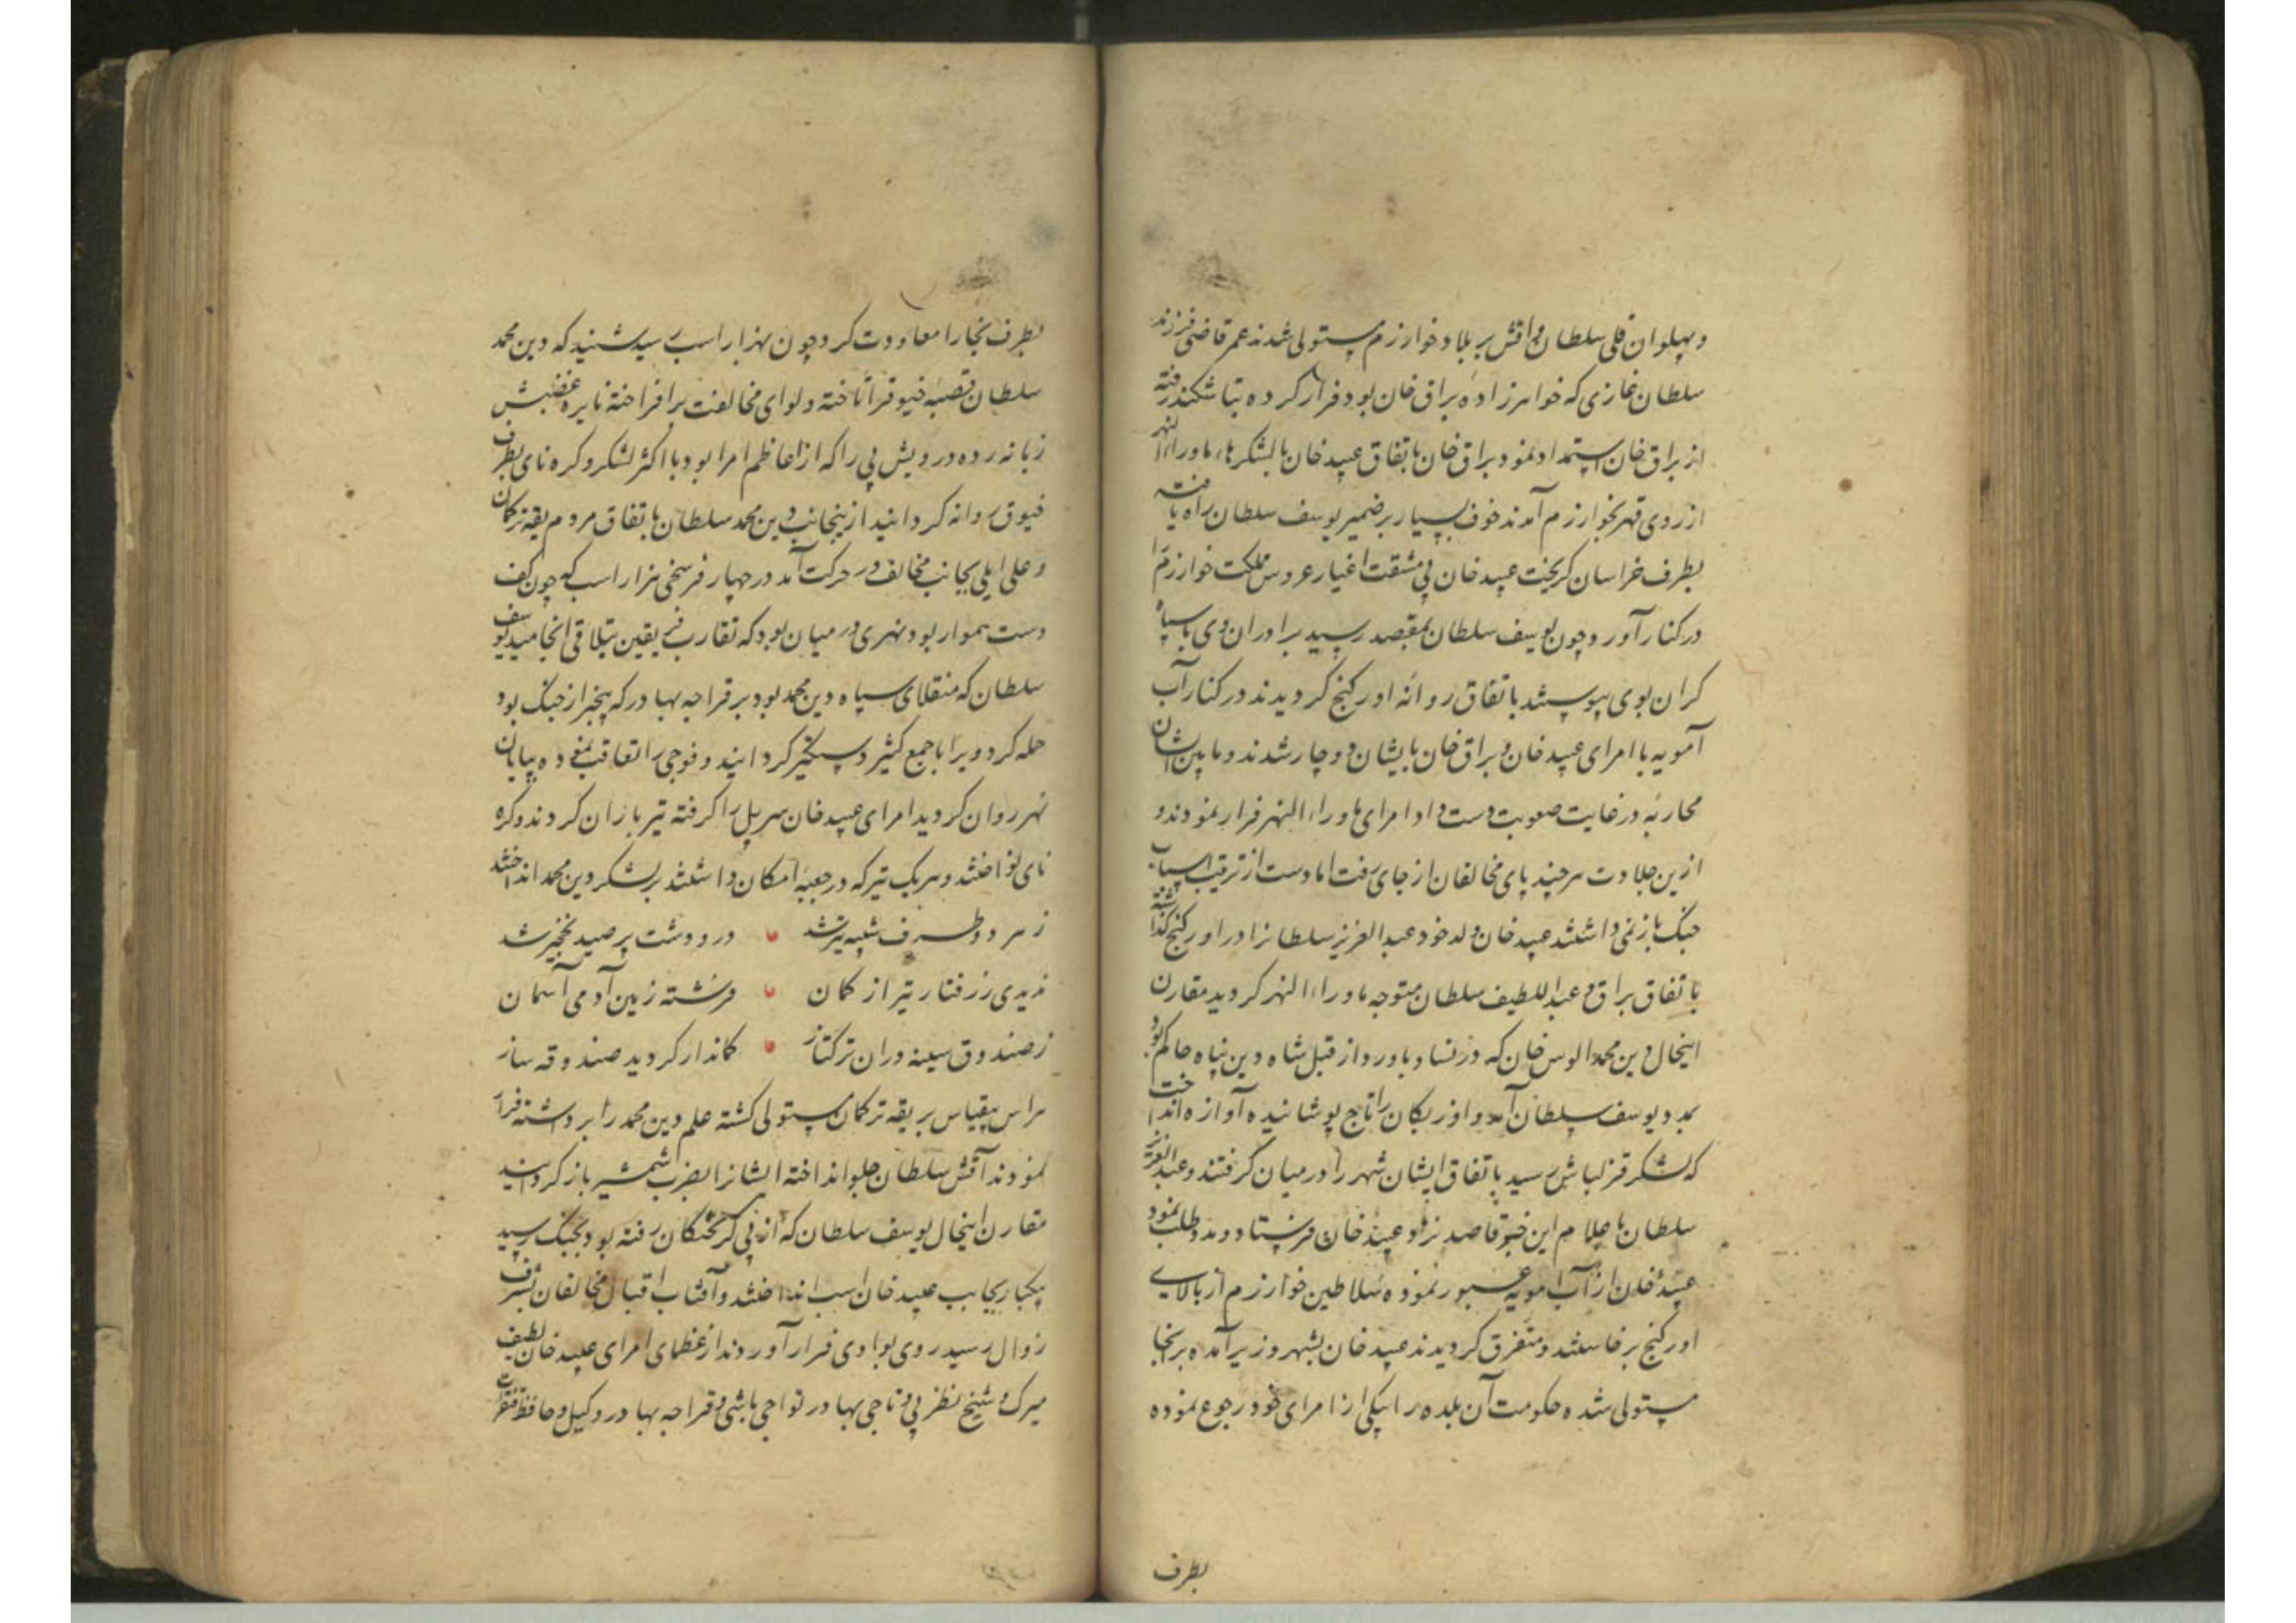 و پهلوان قلی سلطان و اقش بر بلاد خوارزم مستولی شدند عمر قاضی فرزند
سلطان غازی که خواهرزاده براق خان بود فرار کرده بتاشکند رفته
از براق خان استمداد نمود براق خان باتفاق عبید خان با لشکرهاء ماوراءالنهر
از روی قهر بخوارزم آمدند خوف بسیار بر ضمیر یوسف سلطان راه یافته
بطرف خراسان کریخت عبید خان بی مشقت اغیار عروس مملکت خوارزم را
در کنار آورد و چون یوسف سلطان بمقصد رسید برادران وی با سپاه
کران بوی پیوستند باتفاق روانه اورکنج کردیدند در کنار آب
آمویه با امرای عبید خان و براق خان بایشان دوچار شدند و مابین ایشان
محاربه در غایت صعوبت دست داد امرای ماوراءالنهر فرار نمودند و
ازین جلادت هرچند پای مخالفان از جای رفت اما دست از ترتیب اسباب
جنک باز نمی داشتند عبید خان ولد خود عبدالعزیز سلطانرا در اورکنج کذاشته
باتفاق براق و عبداللطیف سلطان متوجه ماوراءالنهر کردید مقارن
اینحال دین محمد الوس خان که در نسا و باورد از قبل شاه دین پناه حاکم بود
بمدد یوسف سلطان آمد و اوزبکان را تاج پوشانیده آوازه انداخت
که لشکر قزلباش رسید باتفاق ایشان شهر را در میان کرفتند و عبدالعزیز
سلطان باعلام این خبر قاصد نزد عبید خان فرستاد و مدد طلب نمود
عبید خان از آب امویه عبور نموده سلاطین خوارزم از بالای
اورکنج برخاستند و متفرق کردیدند عبید خان بشهر وزیر آمده برنجا
مستولی شده حکومت آن بلده را بیکی از امرای خود رجوع نموده
بطرف
بطرف بخارا معاودت کرد چون بهزار اسب رسید شنید که دین محمد
سلطان قصبه خیوق را تاخته و لوای مخالفت برافراخته نایره غضبش
زبانه زده درویش بی را که از اعاظم امرا بود با اکثر لشکر و کره نای بطرف
خیوق روانه کردانید ازینجانب دین محمد سلطان باتفاق مردم یقه ترکمان
و علی ایلی بجانب مخالف در حرکت آمد در چهار فرسخی هزار اسب که چون کف
دست هموار بود و نهری در میان بود که تقارب فریقین بتلاقی انجامید یوسف
سلطان که منقلای سپاه دین محمد بود بر قراجه بهادر که بیخبر از جنک بود
حمله کرد و ویرا با جمع کثیر دستکیر کردانید و فوجی را تعاقب نموده بپایان
نهر روان کردید امرای عبید خان سر پل را کرفته تیرباران کردند و کره
نای نواختند و هر یک تیر که در جعبه امکان داشتند بر لشکر دین محمد انداختند
ز هر دو طرف شیبه تیز شد در و دشت پر صید نخجیر شد
ندیدی ز رفتار تیر از کمان فرشته زمین آدمی آسمان
ز صندوق سینه دران ترکتاز کماندار کردید صندوقه ساز
هراس بیقیاس بر یقه ترکمان مستولی کشته علم دین محمد را برداشته فرار
نمودند آقش سلطان جلو انداخته ایشانرا بضرب شمشیر باز کردانید
مقارن اینحال یوسف سلطان که از پی کریختکان رفته بود بجنک رسید
یکبار بجانب عبید خان اسب انداختند و آفتاب اقبال مخالفان بشرف
زوال رسید روی بوادی فرار آوردند از عظمای امرای عبید خان لطیف
میرک و شیخ نظر بی و تاجی بهادر تواجی باشی و قراجه بهادر وکیل و حافظ